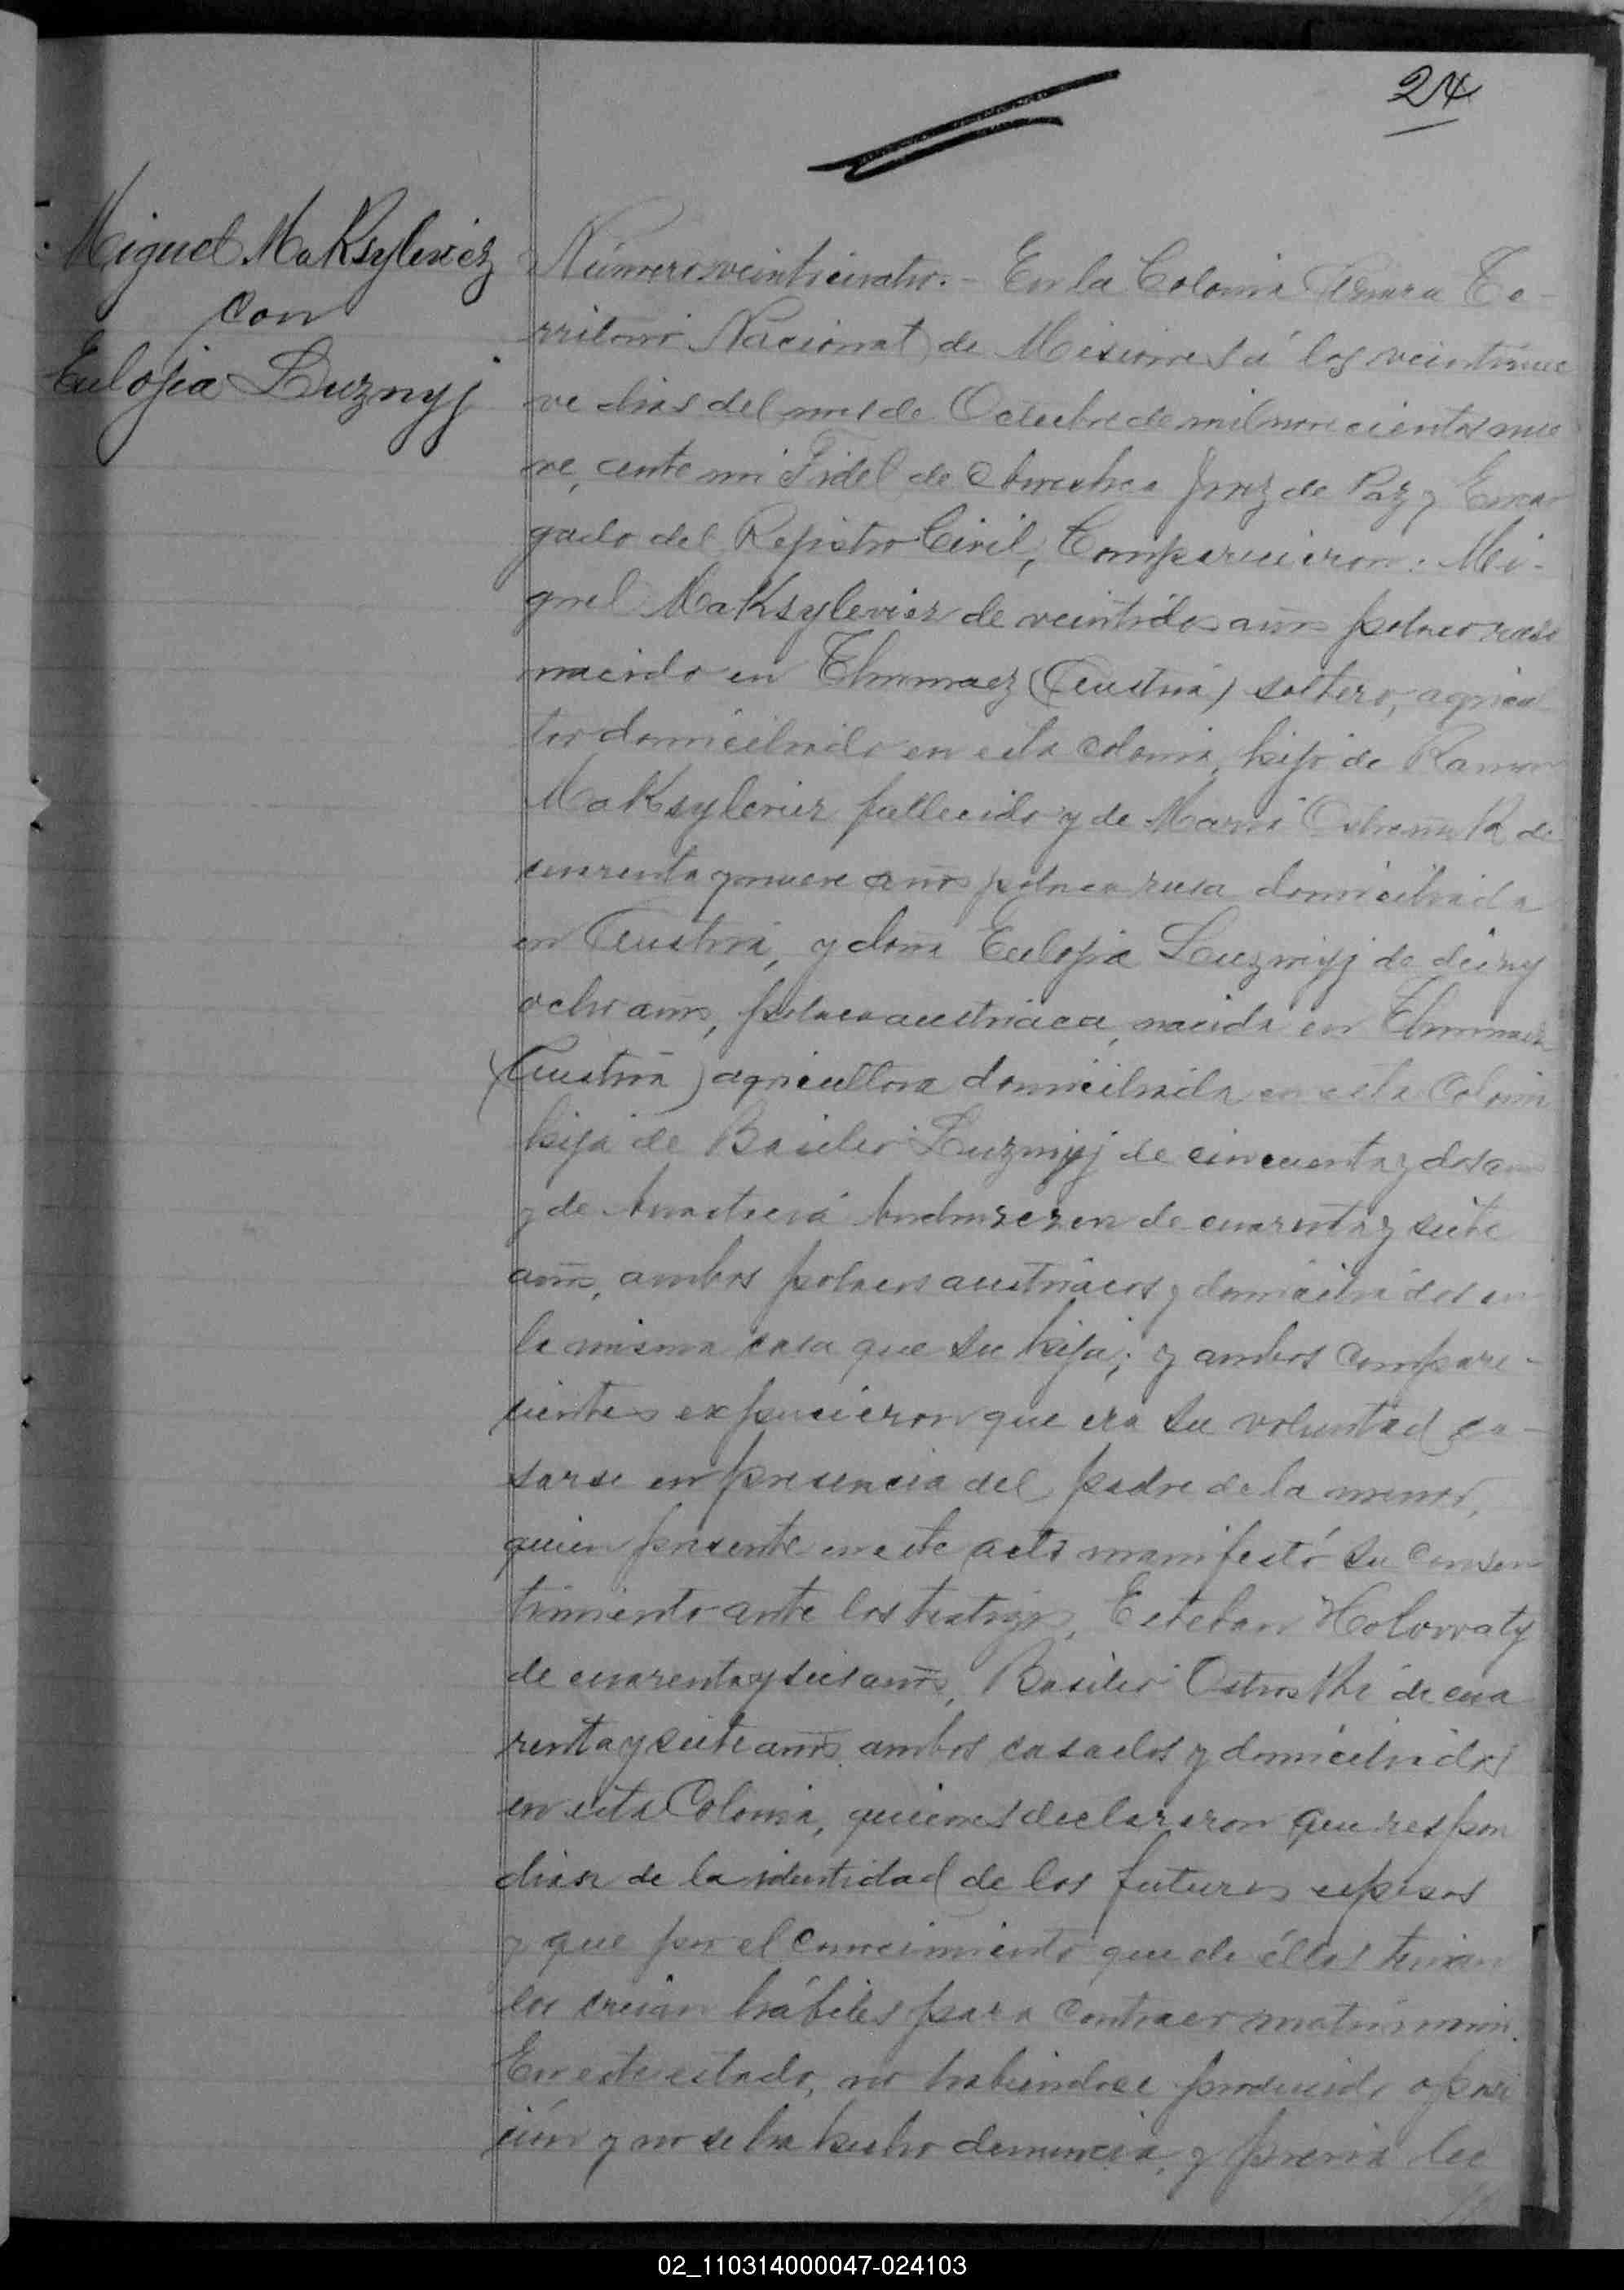 24
Miguel Maksylevicz
con
Eulojia Luznyj
Número veinticuatro.- En la Colonia Te-
rritorio Nacional de Misiones á los veintinue
ve dias del mes de Octubre de mil novecientos nue
ve, ante mi Fidel de Juez de Paz y Encar
gado del Rejistro Civil, Comparecieron: Mi-
guel Maksylevicz de veintidos años polaco ruso
nacido en (Austria) soltero, agricul
tor domiciliado en esta colonia, hijo de Ramon
Maksylevicz fallecido y de Maria de
cuarenta y nueve años polaca rusa domiciliada
en Austria, y doña Eulojia Luznyj de diez y
ocho años, polaca austriaca, nacida en
(Austria) agricultora domiciliada en esta Colonia
hija de Basilio Luznyj de cincuenta y dos años
y de de cuarenta y siete
años, ambos polacos austriacos y domiciliados en
la misma casa que su hija; y ambos compare-
cientes expusieron que era su voluntad ca-
sarse en presencia del padre de la menor,
quien presente en este acto manifestó su consen
timiento ante los testigos, Esteban Holovaty
de cuarenta y seis años, Basilio de cua
renta y siete años ambos casados y domiciliados
en esta Colonia, quienes declararon que respon
dian de la identidad de los futuros esposos
y que por el conocimiento que de éllos tenian
los creian hábiles para contraer matrimonio.
En este estado, no habiendose producido oposi
ción y no se ha hecho denuncia, y previa lec
02_110314000047-024103